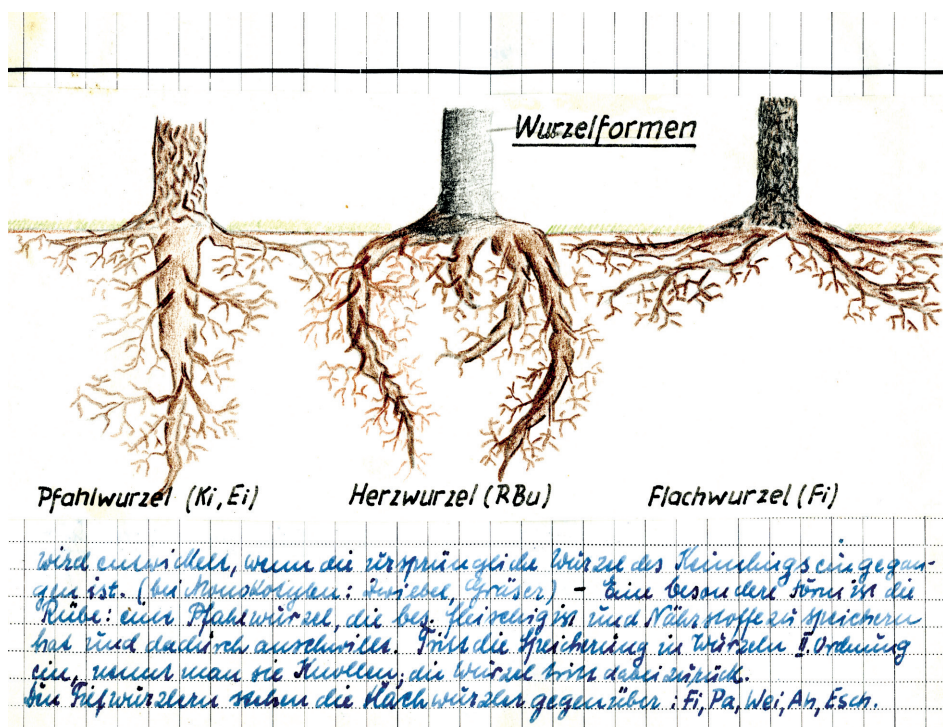 Wurzelformen
Pfahlwurzel (Ki, Ei)
Herzwurzel (RBu)
Flachwurzel (Fi)
wird entwickelt, wenn die ursprüngliche Wurzel des Keimlings eingegan-
gen ist. (bei Monokotylen: Zwiebel, Gräser) - Eine besondere Form ist die
Rübe: eine Pfahlwurzel, die bes. fleischig ist und Nährstoffe zu speichern
hat und dadurch anschwillt. Tritt die Speicherung in Wurzeln II. Ordnung
ein, nennt man sie Knollen; die Wurzel tritt dabei zurück.
Den Tiefwurzlern stehen die Flachwurzler gegenüber: Fi, Pa, Wei, Ah, Esch.